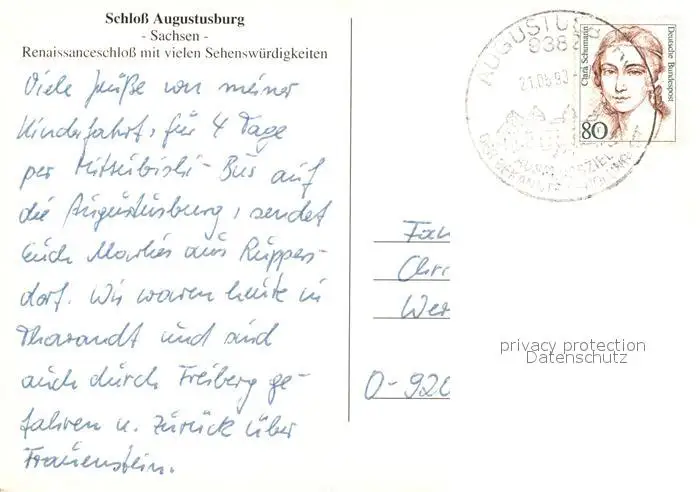 Schloß Augustusburg
- Sachsen -
Renaissanceschloß mit vielen Sehenswürdigkeiten
Viele Grüße von meiner
Kinderfahrt, für 4 Tage
per Mitsubishi-Bus auf
die Augustusburg, sendet
Euch Marlies aus Ruppers-
dorf. Wir waren heute in
Tharandt und sind
auch durch Freiberg ge-
fahren u. zurück über
Frauenstein.
AUGUSTUSB
938
21.08.92
AUSFLUGSZIEL
Clara Schumann
Deutsche Bundespost
80
Fam
Chri
Wer
O-920
privacy protection
Datenschutz